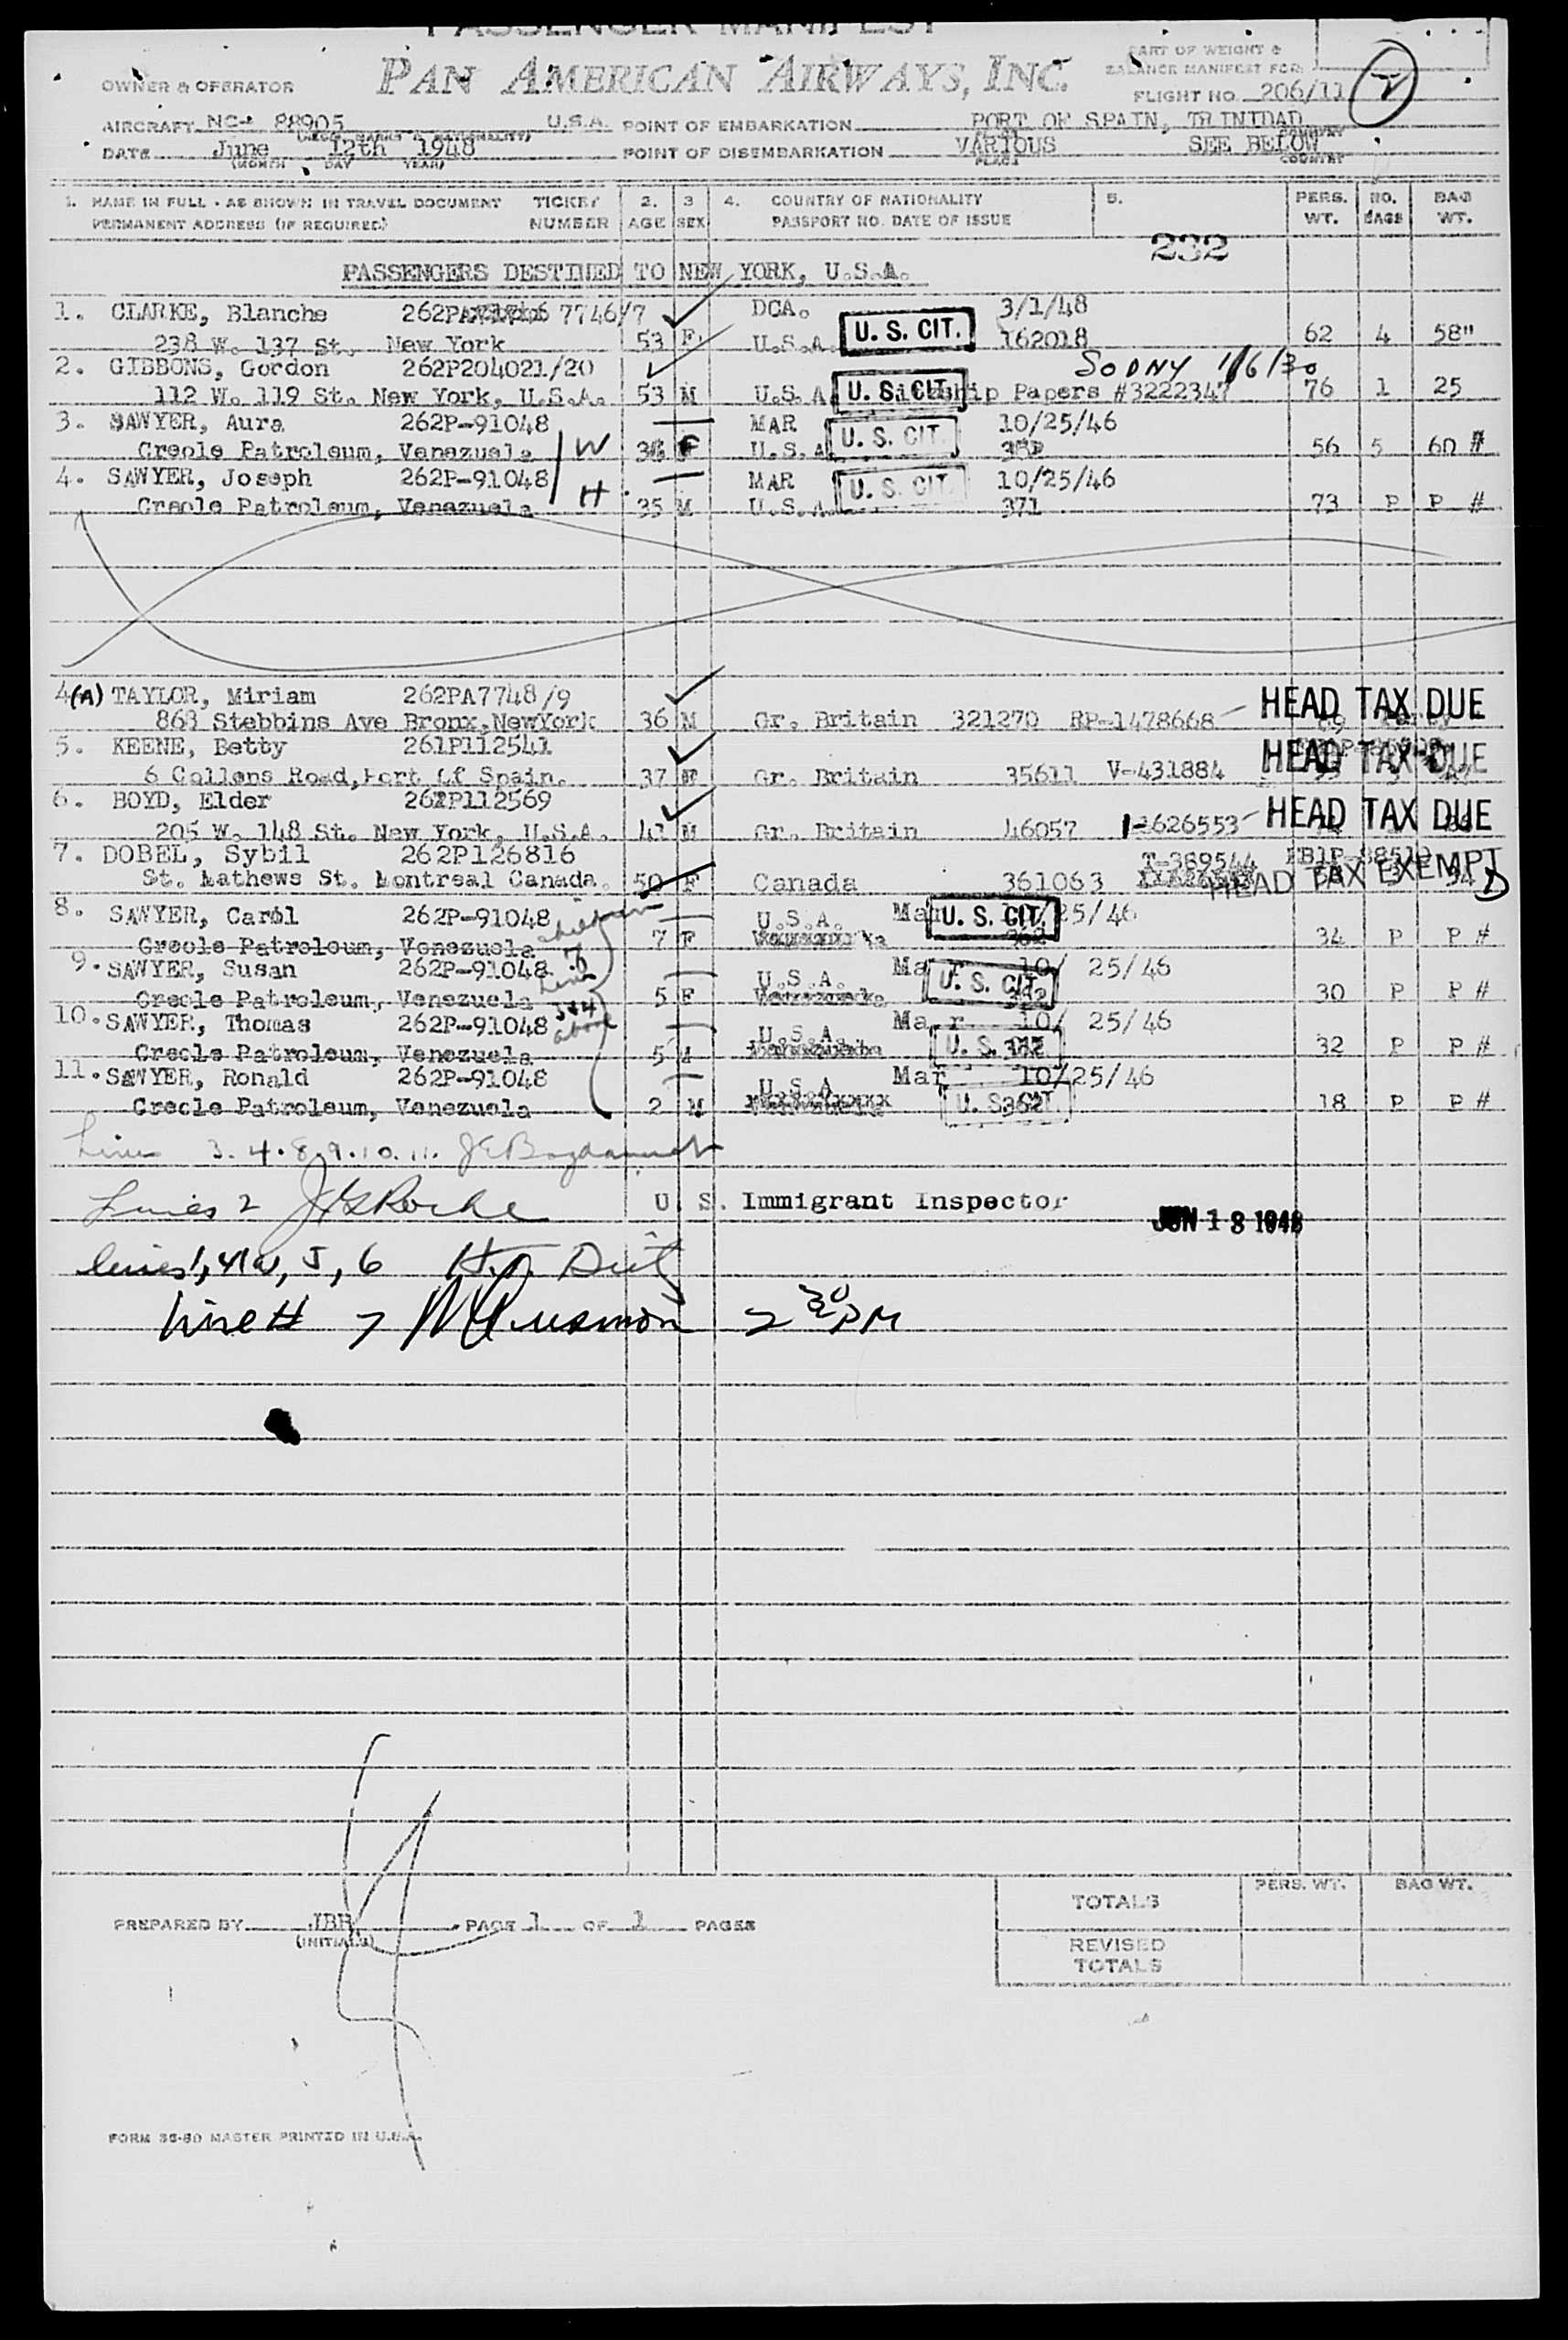 PASSENGER MANIFEST
PAN AMERICAN AIRWAYS, INC.
PART OF WEIGHT &
BALANCE MANIFEST FOR
OWNER & OPERATOR
FLIGHT NO. 206/11 2
AIRCRAFT NC- 88905 U.S.A. POINT OF EMBARKATION PORT OF SPAIN, TRINIDAD
(REGIS. MARKS & NATIONALITY) COUNTRY
DATE June 12th 1948 POINT OF DISEMBARKATION VARIOUS SEE BELOW
(MONTH DAY YEAR) PLACE COUNTRY
1. NAME IN FULL - AS SHOWN IN TRAVEL DOCUMENT TICKET 2. 3 4. COUNTRY OF NATIONALITY 5. PERS. NO. BAG
PERMANENT ADDRESS (IF REQUIRED) NUMBER AGE SEX PASSPORT NO. DATE OF ISSUE WT. BAGS WT.
232
PASSENGERS DESTINED TO NEW YORK, U.S.A.
1. CLARKE, Blanche 262PA 7746/7 DCA. 3/1/48
238 W. 137 St. New York 53 F. U.S.A. U. S. CIT. 162018 62 4 58"
2. GIBBONS, Gordon 262P204021/20 SODNY 1/6/30
112 W. 119 St. New York, U.S.A. 53 M U.S.A. U. S. CIT. Papers #3222347 76 1 25
3. SAWYER, Aura 262P-91048 MAR 10/25/46
Creole Patroleum, Venezuela W 36 F U.S.A U. S. CIT. 56 5 60 #
4. SAWYER, Joseph 262P-91048 MAR 10/25/46
Creole Patroleum, Venezuela H 35 M U.S.A U. S. CIT. 371 73 P P #
4(A) TAYLOR, Miriam 262PA7748/9 HEAD TAX DUE
868 Stebbins Ave Bronx, NewYork 36 M Gr. Britain 321270 RP-1478668
5. KEENE, Betty 261P112541 HEAD TAX DUE
6 Collens Road, Port Of Spain. 37 F Gr. Britain 35611 V-431884
6. BOYD, Elder 261P112569 HEAD TAX DUE
205 W. 148 St. New York, U.S.A. 41 M Gr. Britain 46057 1-626553
7. DOBEL, Sybil 262P126816 T-389544
St. Mathews St. Montreal Canada. 50 F Canada 361063 HEAD TAX EXEMPT
8. SAWYER, Carol 262P-91048 children U.S.A. Mar U. S. CIT. 25/46
Creole Patroleum, Venezuela of 7 F 362 34 P P #
9. SAWYER, Susan 262P-91048 Line U.S.A. Mar 10/ 25/46
Creole Patroleum, Venezuela 5 F U. S. CIT. 30 P P #
10. SAWYER, Thomas 262P-91048 3&4 above U.S.A. Mar 10/ 25/46
Creole Patroleum, Venezuela 5 M U. S. 362 32 P P #
11. SAWYER, Ronald 262P-91048 U.S.A. Mar 10/25/46
Creole Patroleum, Venezuela 2 M U. S. CIT. 362 18 P P #
Lines 3. 4. 8. 9. 10. 11.
Lines 2 U. S. Immigrant Inspector JUN 18 1948
lines 1, 4(a), 5, 6
Line # 7 2 30 PM
TOTALS PERS. WT. BAG WT.
PREPARED BY JBR PAGE 1 OF 1 PAGES
(INITIALS)
REVISED
TOTALS
FORM 36-80 MASTER PRINTED IN U.S.A.